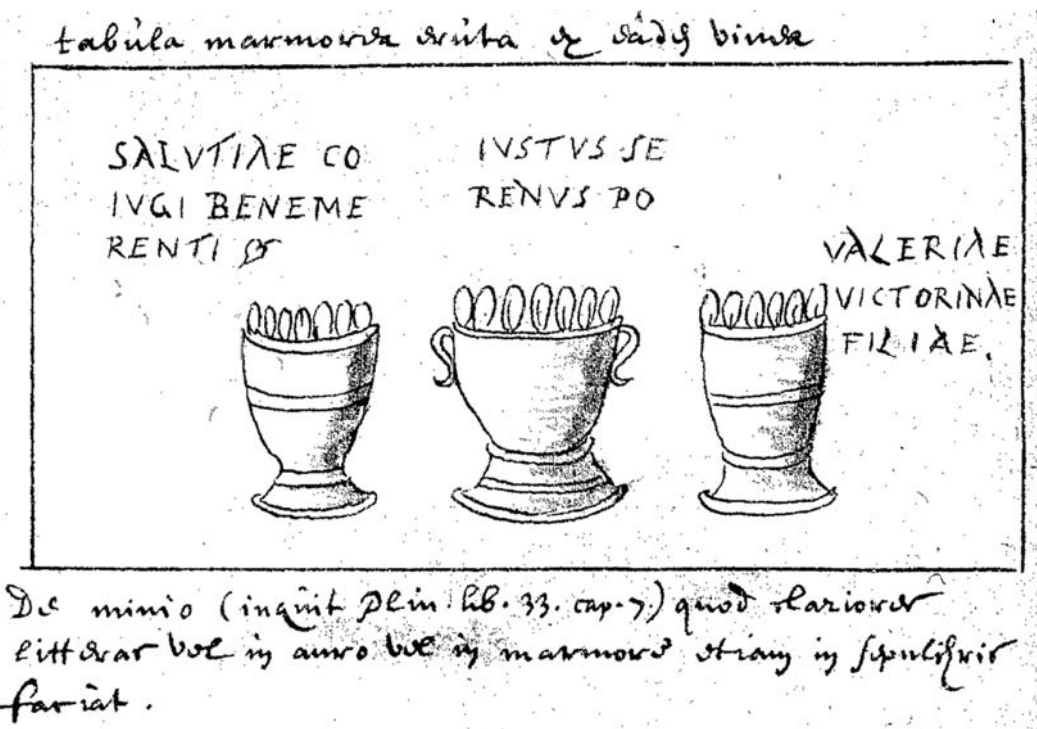 tabula marmorea eruta ex eadē vinea
SALVTIAE CO
IVGI BENEME
RENTI
IVSTVS SE
RENVS PO
VALERIAE
VICTORINAE
FILIAE.
De minio (inquit Plin. lib. 33. cap. 7.) quod clariores
litteras vel in auro vel in marmore etiam in sepulchris
faciat.